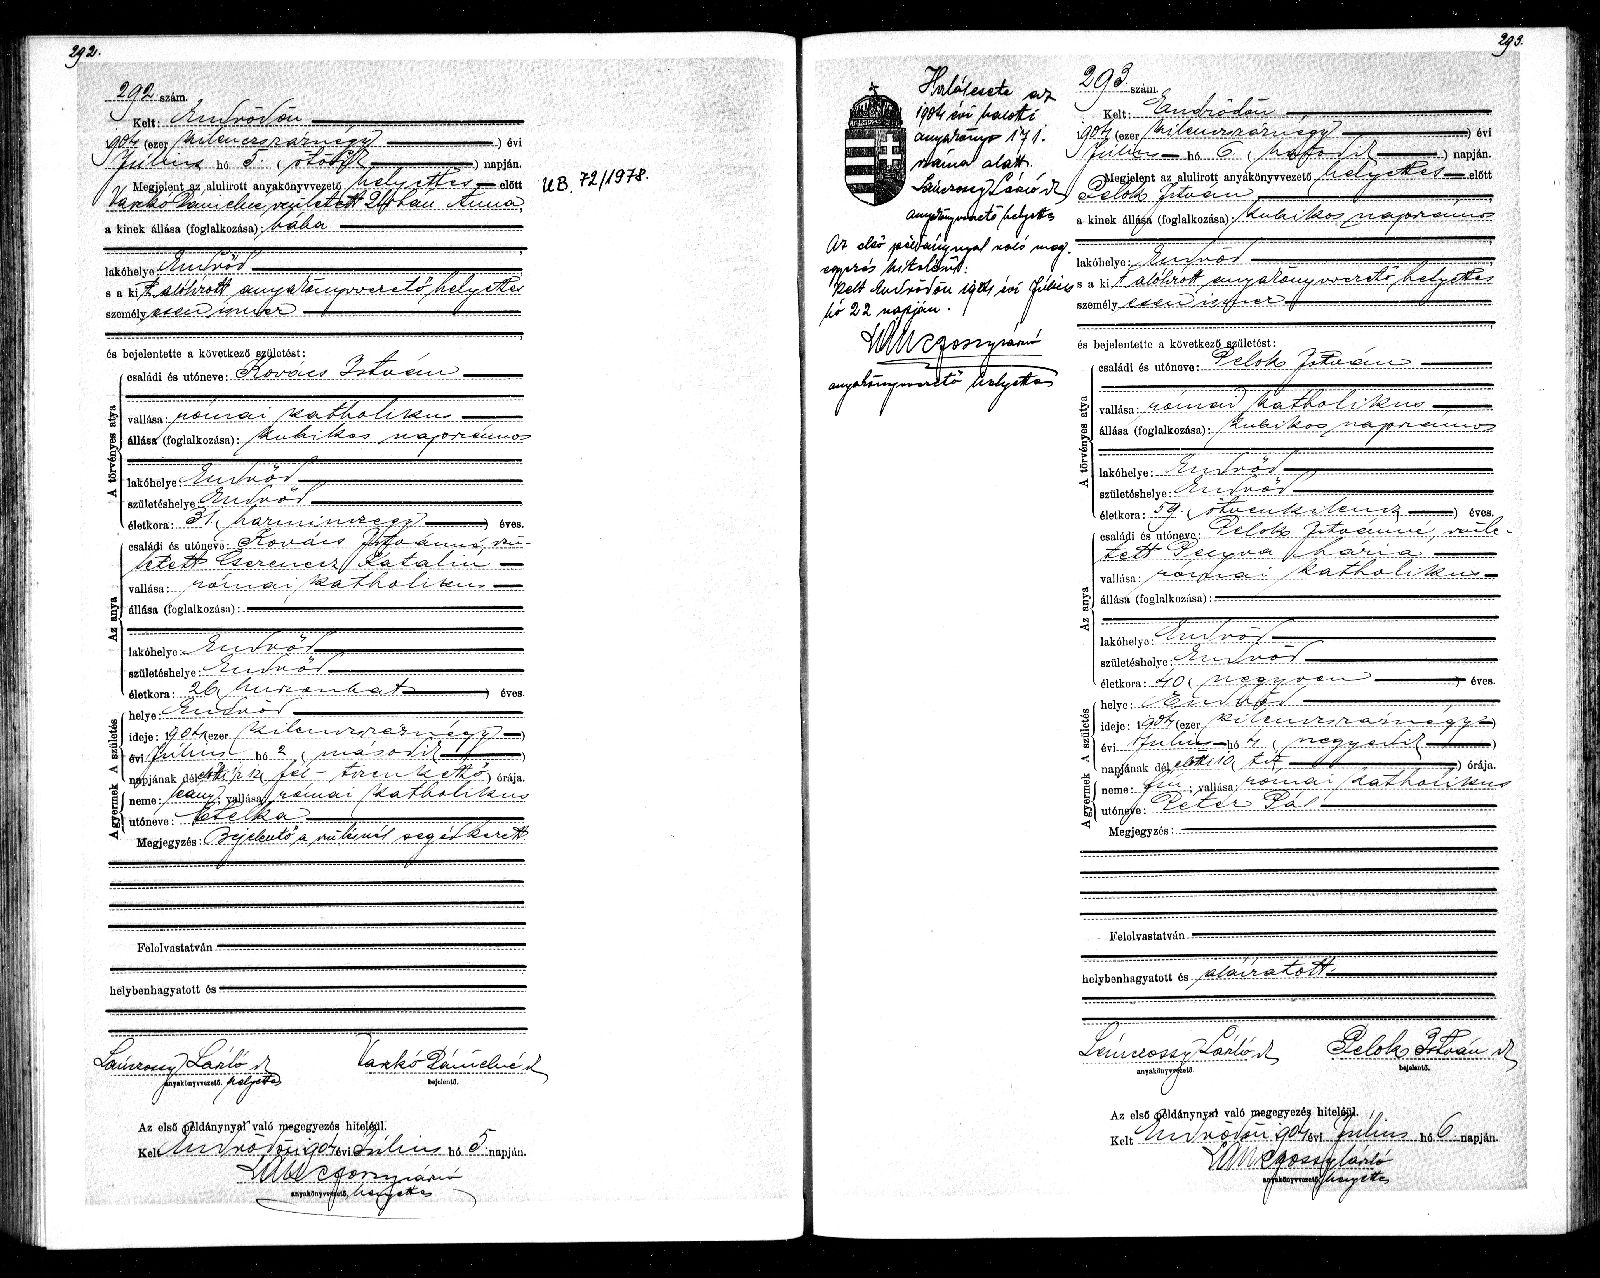 292.
292 szám.
Kelt: Endrődön
1904 (ezer kilenczszáznégy) évi
Július hó 5. (ötödik) napján.
Megjelent az alulirott anyakönyvvezető helyettes előtt
Vaskó Dánielné, született Anna,
a kinek állása (foglalkozása): bába
lakóhelye Endrőd
s a kit alólirott anyakönyvvezető helyettes
személyesen ismer
és bejelentette a következő születést:
A törvényes atya
családi és utóneve: Kovács István
vallása: római katholikus
állása (foglalkozása): kubikos napszámos
lakóhelye: Endrőd
születéshelye: Endrőd
életkora: 31 (harminczegy) éves.
Az anya
családi és utóneve: Kovács Istvánné, szü-
letett Gerencsér Katalin
vallása: római katholikus
állása (foglalkozása):
lakóhelye: Endrőd
születéshelye: Endrőd
életkora: 26 (huszonhat) éves.
A születés
helye: Endrőd
ideje: 1904 (ezer kilenczszáznégy)
évi Július hó 2 (második)
napjának dél előtti ½12 (fél-tizenkettő) órája.
A gyermek
neme: leány; vallása: római katholikus
utóneve: Etelka
Megjegyzés: Bejelentő a szülésnél segédkezett
Felolvastatván
helybenhagyatott és
Lánczossy László sk Vaskó Dánielné sk
anyakönyvvezető. helyettes bejelentő.
Az első példánynyal való megegyezés hiteléül.
Kelt Endrődön 1904 évi Július hó 5 napján.
Lánczossy László
anyakönyvvezető. helyettes
UB. 72/1978.
293.
Halálesete az
1904 évi halotti
anyakönyv 171.
száma alatt.
Lánczossy László sk
anyakönyvvezető helyettes
Az első példánynyal való meg-
egyezés hiteléül:
Kelt Endrődön 1904 évi Július
hó 22 napján.
Lánczossy László
anyakönyvvezető helyettes
293 szám.
Kelt: Endrődön
1904 (ezer kilenczszáznégy) évi
Július hó 6. (hatodik) napján.
Megjelent az alulirott anyakönyvvezető helyettes előtt
Pelok István
a kinek állása (foglalkozása): kubikos napszámos
lakóhelye: Endrőd
s a kit alólirott anyakönyvvezető helyettes
személyesen ismer
és bejelentette a következő születést:
A törvényes atya
családi és utóneve: Pelok István
vallása: római katholikus
állása (foglalkozása): kubikos napszámos
lakóhelye: Endrőd
születéshelye: Endrőd
életkora: 59. (ötvenkilencz) éves.
Az anya
családi és utóneve: Pelok Istvánné, szüle-
tett Mária
vallása: római katholikus
állása (foglalkozása):
lakóhelye: Endrőd
születéshelye: Endrőd
életkora: 40. (negyven) éves.
A születés
helye: Endrőd
ideje: 1904 (ezer kilenczszáznégy)
évi Július hó 4 (negyedik)
napjának dél előtti 10 (tíz) órája.
A gyermek
neme: fiú; vallása: római katholikus
utóneve: Péter Pál
Megjegyzés:
Felolvastatván
helybenhagyatott és aláiratott.
Lánczossy László sk Pelok István sk
anyakönyvvezető. bejelentő.
Az első példánynyal való megegyezés hiteléül.
Kelt Endrődön 1904 évi Július hó 6 napján.
Lánczossy László
anyakönyvvezető. helyettes